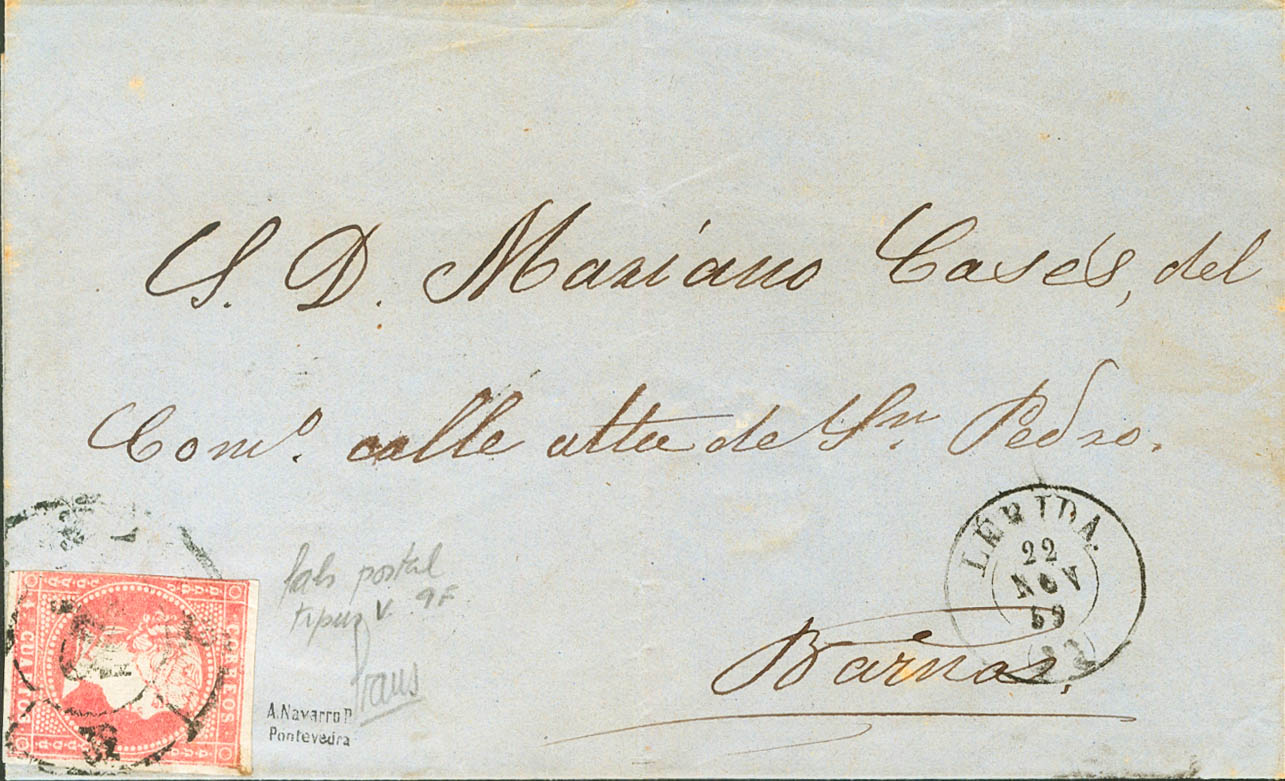 S. D. Mariano Casés, del
Com.º calle alta de Sn. Pedro.
LÉRIDA.
22
NOV
59
Barna.
fals postal
tipus V 9F
A. Navarro P
Pontevedra
CORREOS
4 CUARTOS